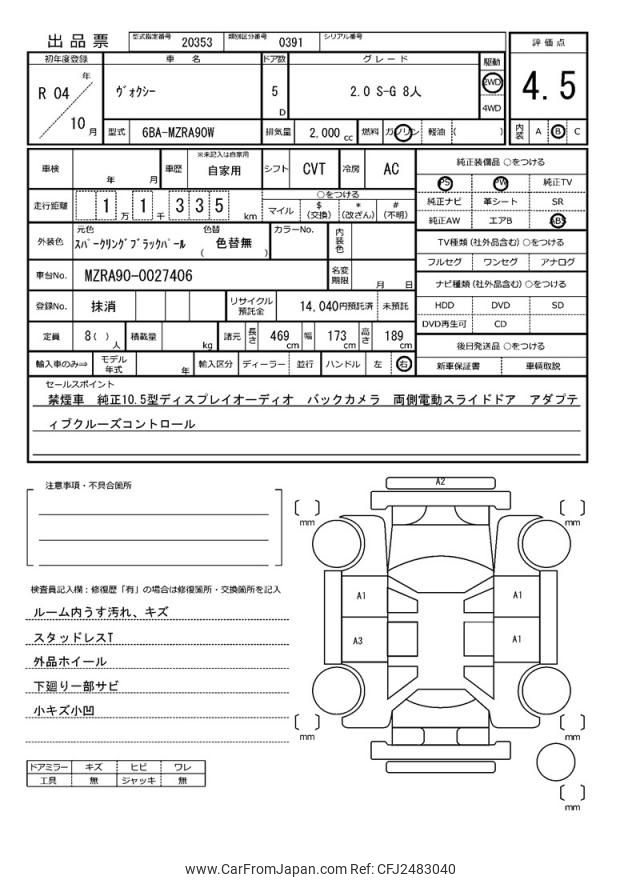 出品票 型式指定番号 20353 類別区分番号 0391 シリアル番号
評価点
4.5
内装 A B C
初年度登録 車名 ドア数 グレード 駆動
R 04 年 ヴォクシー 5 D 2.0 S-G 8人 2WD
4WD
10 月 型式 6BA-MZRA90W 排気量 2,000 cc 燃料 ガソリン 軽油 ( )
車検 年 月 車歴 ※未記入は自家用 自家用 シフト CVT 冷房 AC
走行距離 1 万 1 千 3 3 5 km ○をつける
マイル $(交換) *(改ざん) #(不明)
外装色 元色 スパークリングブラックパール 色替 ( 色替無 ) カラーNo. 内装色
車台No. MZRA90-0027406 名変期限 月 日
登録No. 抹消 リサイクル預託金 14,040円預託済 未預託
定員 8( )人 積載量 kg 諸元 長さ 469cm 幅 173cm 高さ 189cm
輸入車のみ⇒ モデル年式 年 輸入区分 ディーラー 並行 ハンドル 左 右
純正装備品 ○をつける
PS PW 純正TV
純正ナビ 革シート SR
純正AW エアB ABS
TV種類(社外品含む)○をつける
フルセグ ワンセグ アナログ
ナビ種類(社外品含む)○をつける
HDD DVD SD
DVD再生可 CD
後日発送品 ○をつける
新車保証書 車輌取説
セールスポイント
禁煙車 純正10.5型ディスプレイオーディオ バックカメラ 両側電動スライドドア アダプテ
ィブクルーズコントロール
注意事項・不具合箇所
検査員記入欄:修復歴「有」の場合は修復箇所・交換箇所を記入
ルーム内うす汚れ、キズ
スタッドレスT
外品ホイール
下廻り一部サビ
小キズ小凹
ドアミラー キズ ヒビ ワレ
工具 無 ジャッキ 無
A2
[ ] mm [ ] mm
A1 A1
A3 A1
[ ] mm [ ] mm
[ ] mm
www.CarFromJapan.com Ref: CFJ2483040